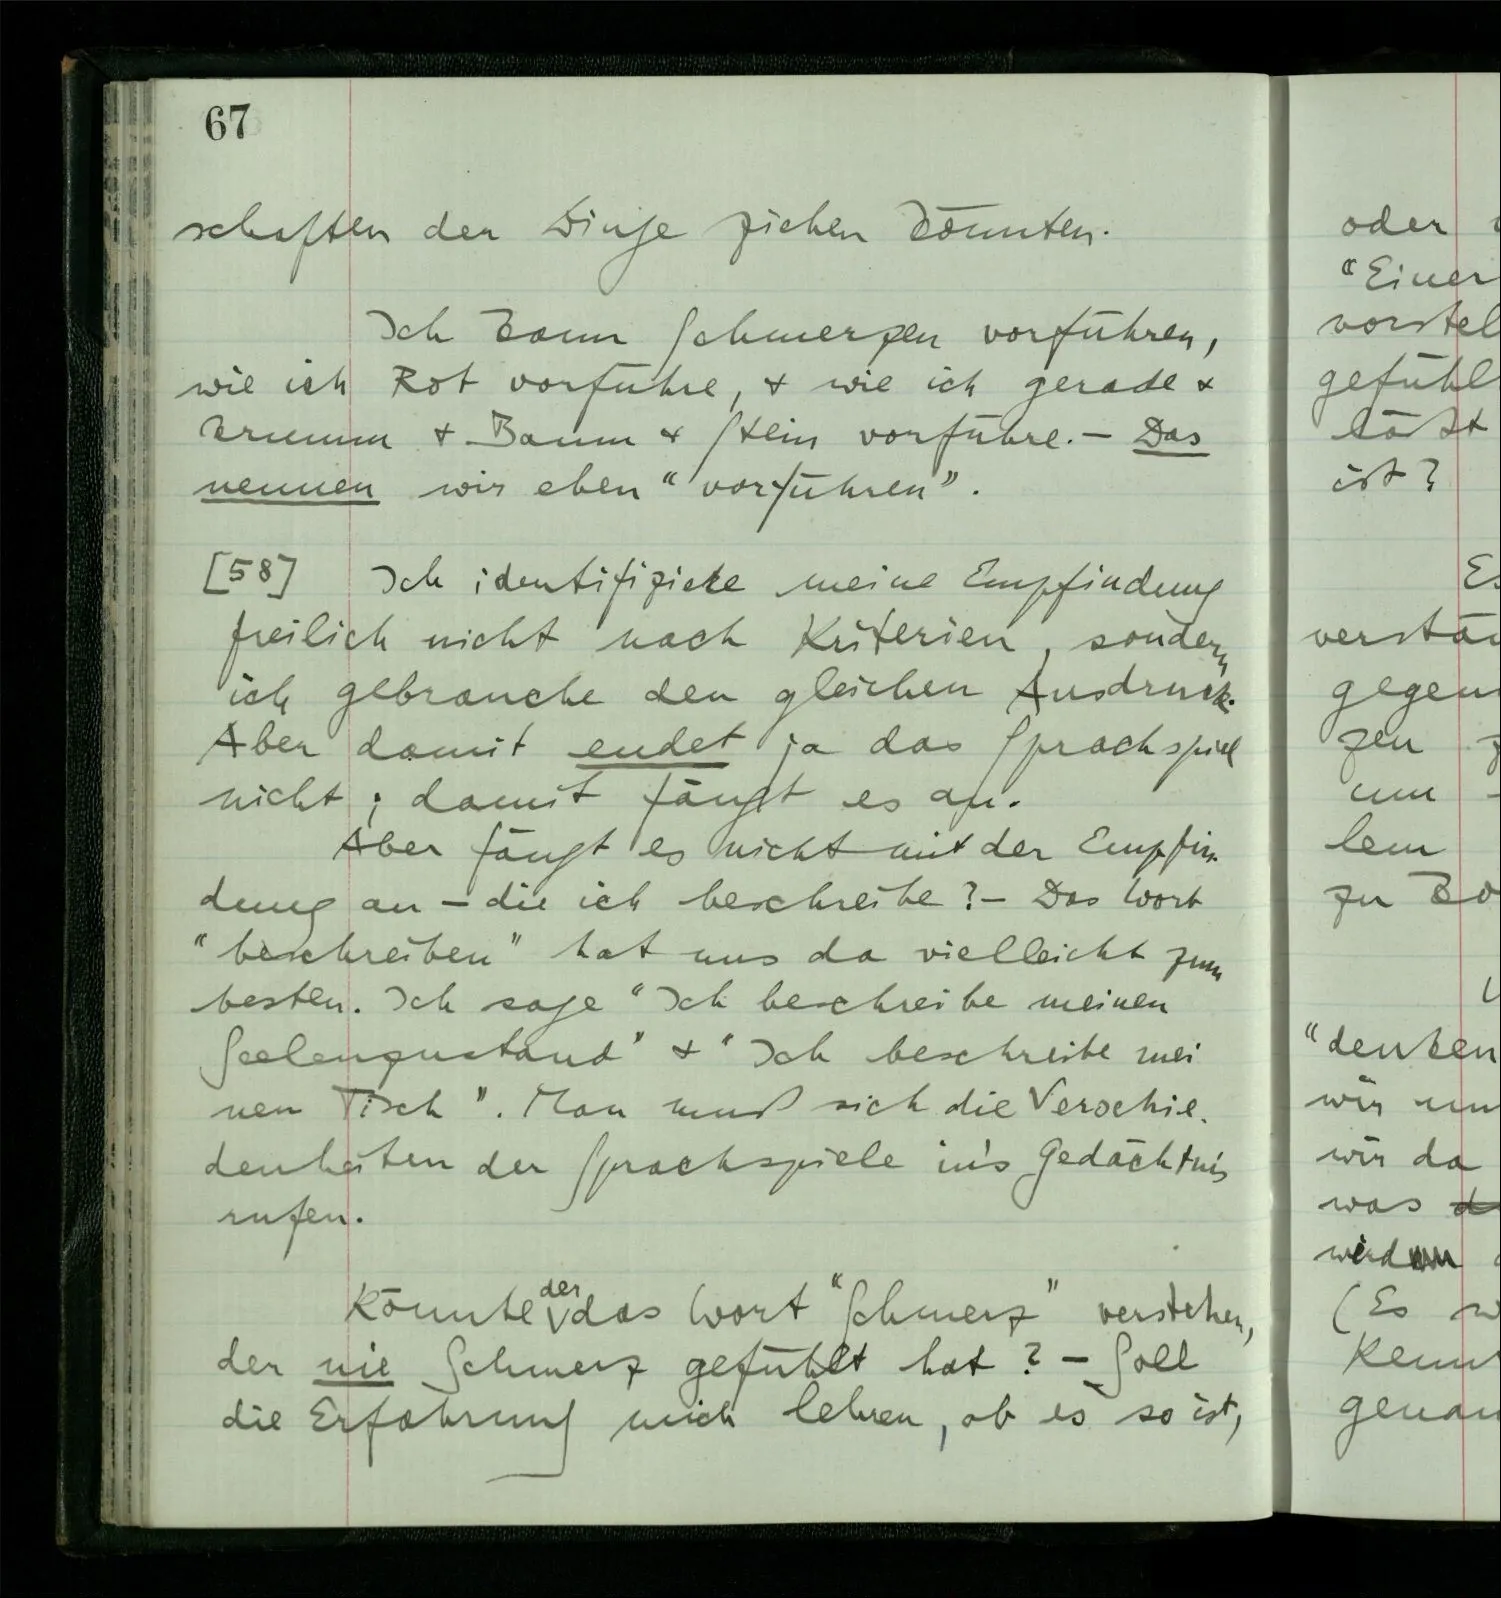 67
schaften der Dinge ziehen könnten.
Ich kann Schmerzen vorführen,
wie ich Rot vorführe, & wie ich gerade &
krumm & Baum & Stein vorführe. – Das
nennen wir eben “vorführen”.
[58] Ich identifiziere meine Empfindung
freilich nicht nach Kriterien, sondern
ich gebrauche den gleichen Ausdruck.
Aber damit endet ja das Sprachspiel
nicht; damit fängt es an.
Aber fängt es nicht mit der Empfin-
dung an – die ich beschreibe? – Das Wort
“beschreiben” hat uns da vielleicht zum
besten. Ich sage “Ich beschreibe meinen
Seelenzustand” & “Ich beschreibe mei
nen Tisch”. Man muß sich die Verschie-
denheiten der Sprachspiele in's Gedächtnis
rufen.
Könnte der das Wort “Schmerz” verstehen,
der nie Schmerz gefühlt hat? – Soll
die Erfahrung mich lehren, ob es so ist,
oder
“Einer
vorstel
gefühl
läßt
ist?
Es
verstän
gegen
zen
um
lem
zu
“denken
wir
wir da
was
(Es
Kenn
genau